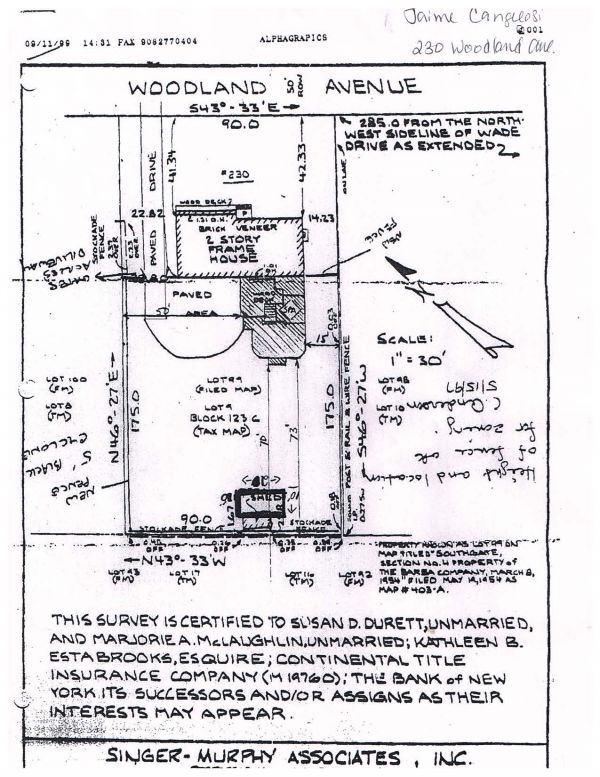 Jaime Canguedsi
001
09/11/99 14:31 FAX 9082770404 ALPHAGRAPICS
230 Woodland Ave.
WOODLAND 50' ROW AVENUE
S43°-33'E →
90.0
285.0 FROM THE NORTH-
WEST SIDELINE OF WADE
DRIVE AS EXTENDED
41.34
42.33
DRIVE
ON LINE
#230
WOOD DECK
22.82
14.23
1.31 O.H.
P
BRICK VENEER
STOCKADE
FENCE
2.37
OVER
PAVED
2 STORY
FRAME
HOUSE
NEW
FENCE
GATES
ACROSS
DRIVEWAY
PAVED
AREA
15'
SCALE:
1" = 30'
5/15/97
C. Anderson
for zoning.
of fence ok
Height and location
LOT 100
(FM)
LOT 8
(TM)
N46°-27'E →
175.0
LOT 99
(FILED MAP)
LOT 9
BLOCK 123 C
(TAX MAP)
70'
73'
175.0
POST & RAIL & WIRE FENCE
S46°-27'W
LOT 98
(FM)
LOT 10
(TM)
NEW
FENCE
5' BLACK
CYCLONE
10'
SHED
10'
90.0
STOCKADE FENCE
STOCKADE
FENCE
OFF
OFF
OFF
OFF
← N43°-33'W
LOT 93
(FM)
LOT 17
(TM)
LOT 16
(TM)
LOT 92
(FM)
PROPERTY KNOWN AS LOT 99 ON
MAP TITLED "SOUTHGATE,
SECTION NO. 4 PROPERTY of
THE BARBA COMPANY, MARCH 8,
1954" FILED MAY 19, 1954 AS
MAP # 403-A.
THIS SURVEY IS CERTIFIED TO SUSAN D. DURETT, UNMARRIED,
AND MARJORIE A. McLAUGHLIN, UNMARRIED; KATHLEEN B.
ESTABROOKS, ESQUIRE; CONTINENTAL TITLE
INSURANCE COMPANY (M 19760); THE BANK of NEW
YORK, ITS SUCCESSORS AND/OR ASSIGNS AS THEIR
INTERESTS MAY APPEAR.
SINGER-MURPHY ASSOCIATES, INC.